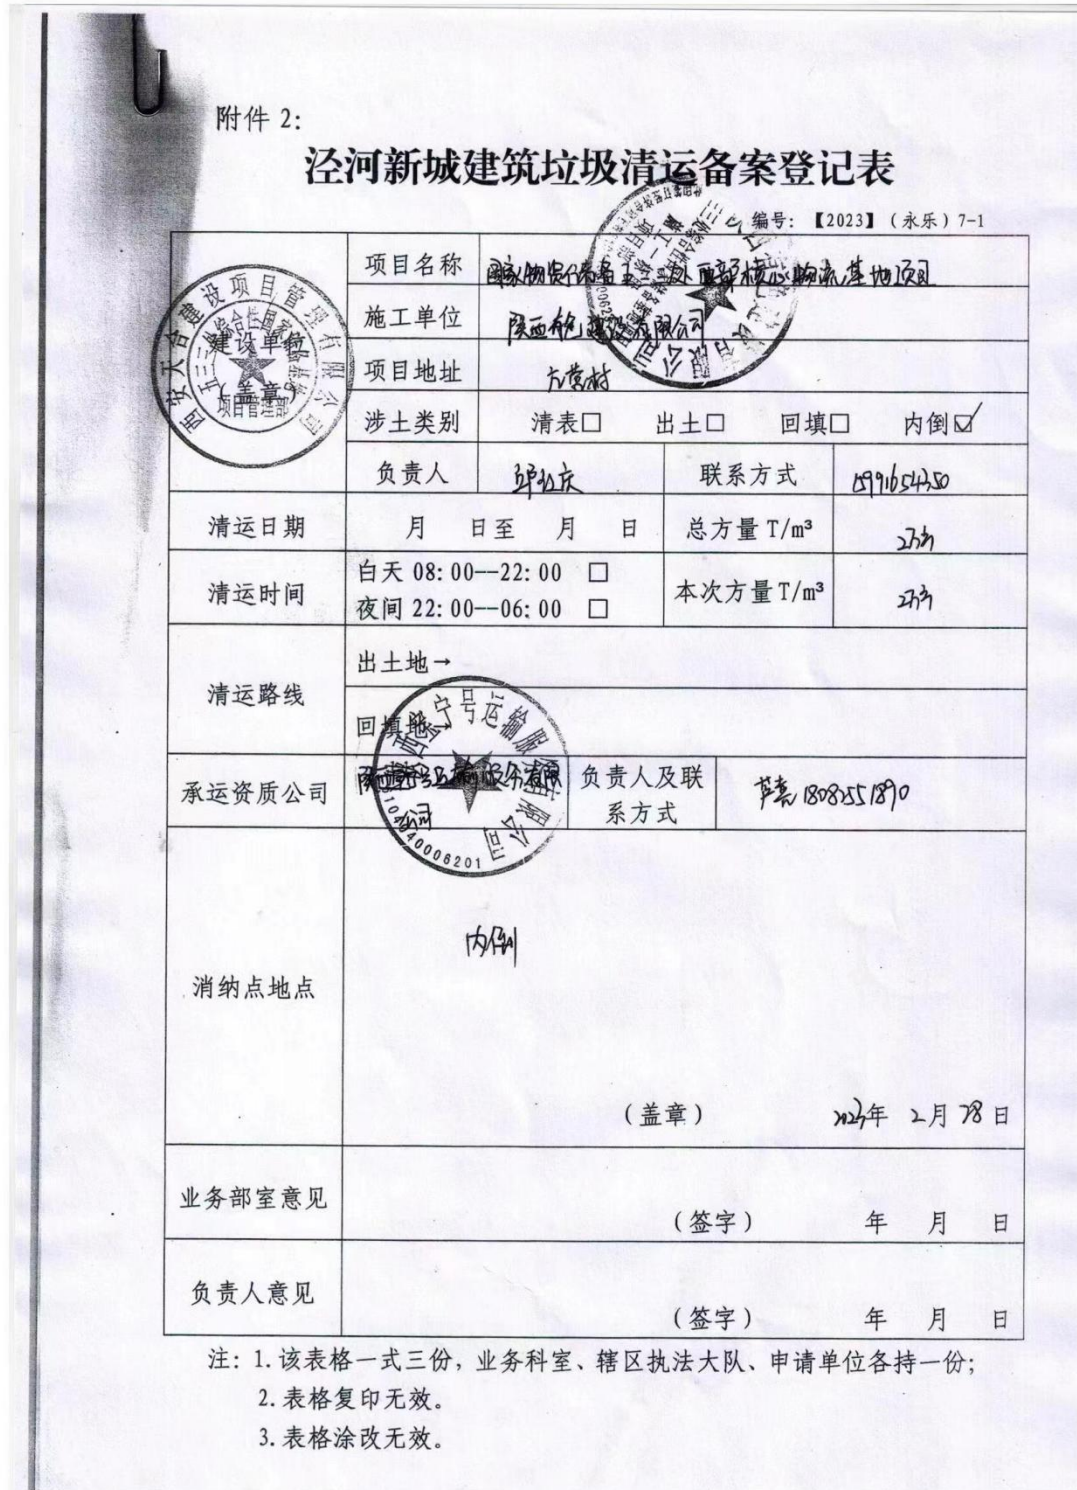 附件 2：
泾河新城建筑垃圾清运备案登记表
编号：【2023】（永乐）7-1
西安天合建设项目管理有限公司
五三三处综合性国家储备基地
项目管理部
建设单位
（盖章）
项目名称 国家物资储备 西部核心物流基地项目
施工单位 陕西有色建设有限公司
项目地址
涉土类别 清表□ 出土□ 回填□ 内倒☑
负责人 联系方式
清运日期 月 日至 月 日 总方量 T/m³ 2万方
清运时间 白天 08:00--22:00 □
夜间 22:00--06:00 □
本次方量 T/m³ 2万方
清运路线 出土地→
回填地→
承运资质公司 陕西宁号运输服务有限
公司
负责人及联
系方式 18082551890
消纳点地点 内倒
（盖章） 2023年 2月 28日
业务部室意见
（签字） 年 月 日
负责人意见
（签字） 年 月 日
注：1.该表格一式三份，业务科室、辖区执法大队、申请单位各持一份；
2.表格复印无效。
3.表格涂改无效。